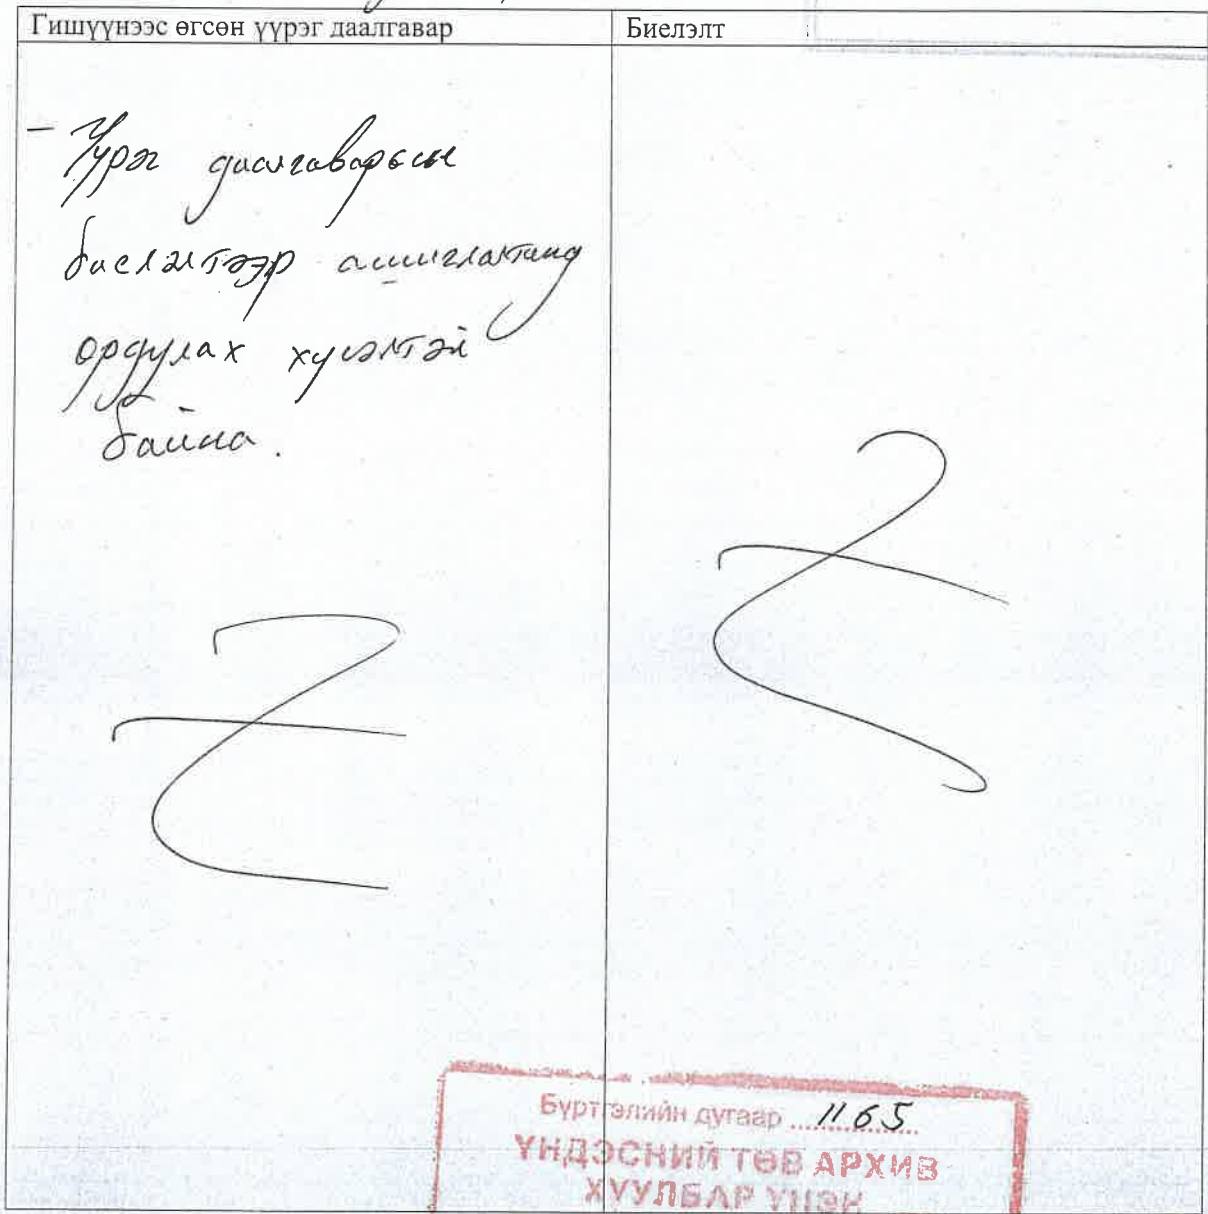 Гишүүнээс өгсөн үүрэг даалгавар Биелэлт
- Үүрэг даалгаварын
биелэлтээр ашиглалтанд
оруулах хүсэлтэй
байна.
Бүртгэлийн дугаар 1165
ҮНДЭСНИЙ ТӨВ АРХИВ
ХУУЛБАР ҮНЭН